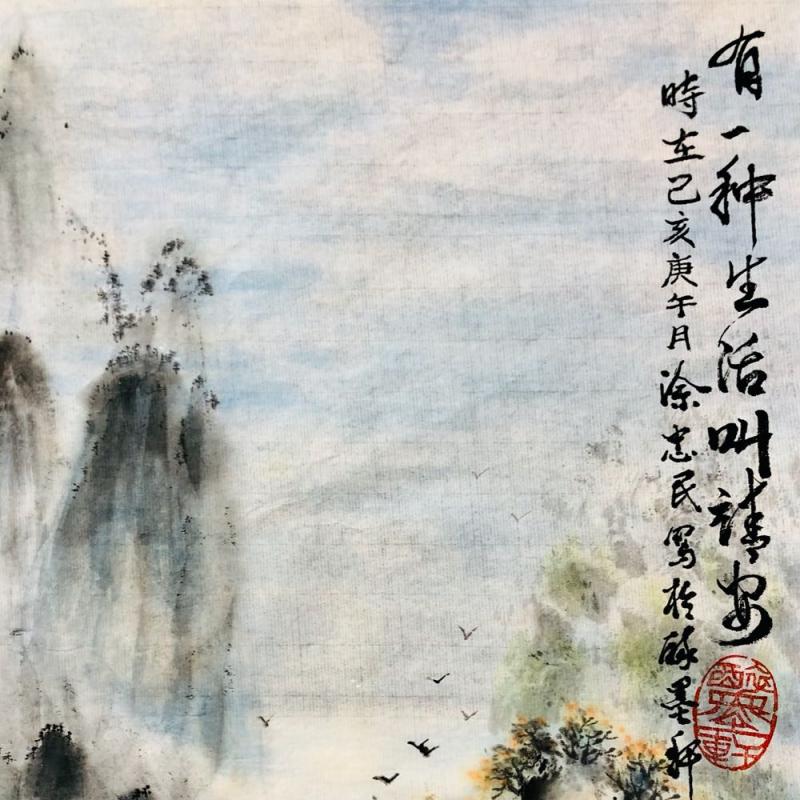 有一种生活叫靖安
時在己亥庚午月涂忠民寫於醉墨軒